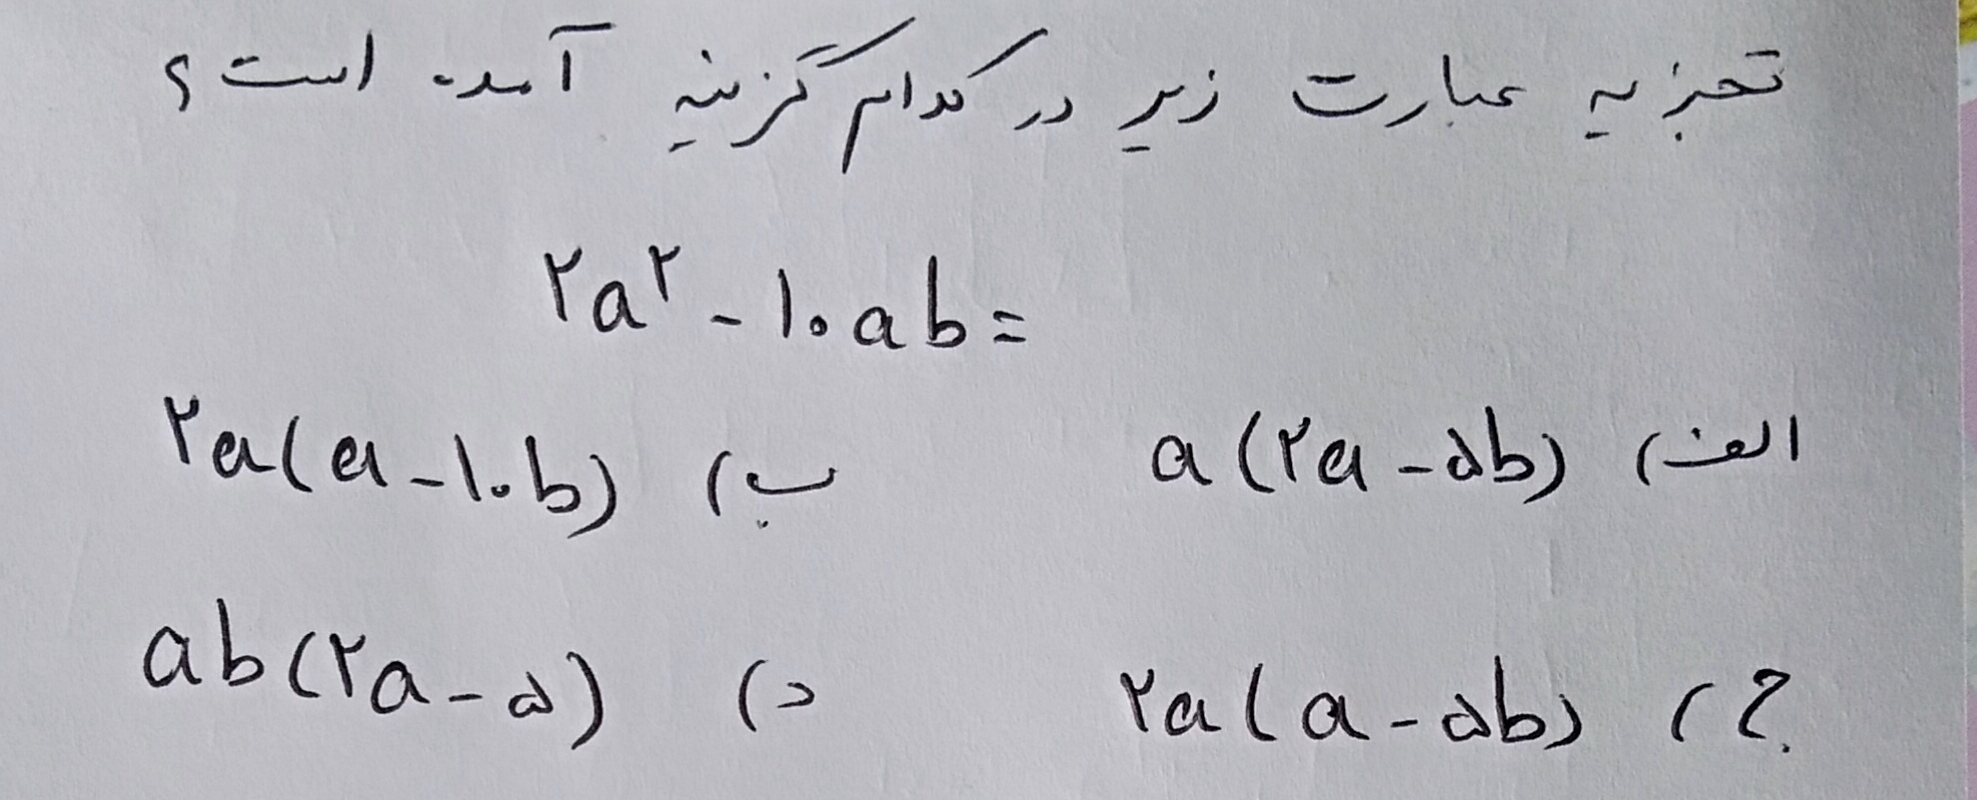 تجزیه عبارت زیر در کدام گزینه آمده است؟
۲a^۲ - ۱۰ab =
الف) a(۲a - ۵b) ب) ۲a(a - ۱۰b)
ج) ۲a(a - ۵b) د) ab(۲a - ۵)